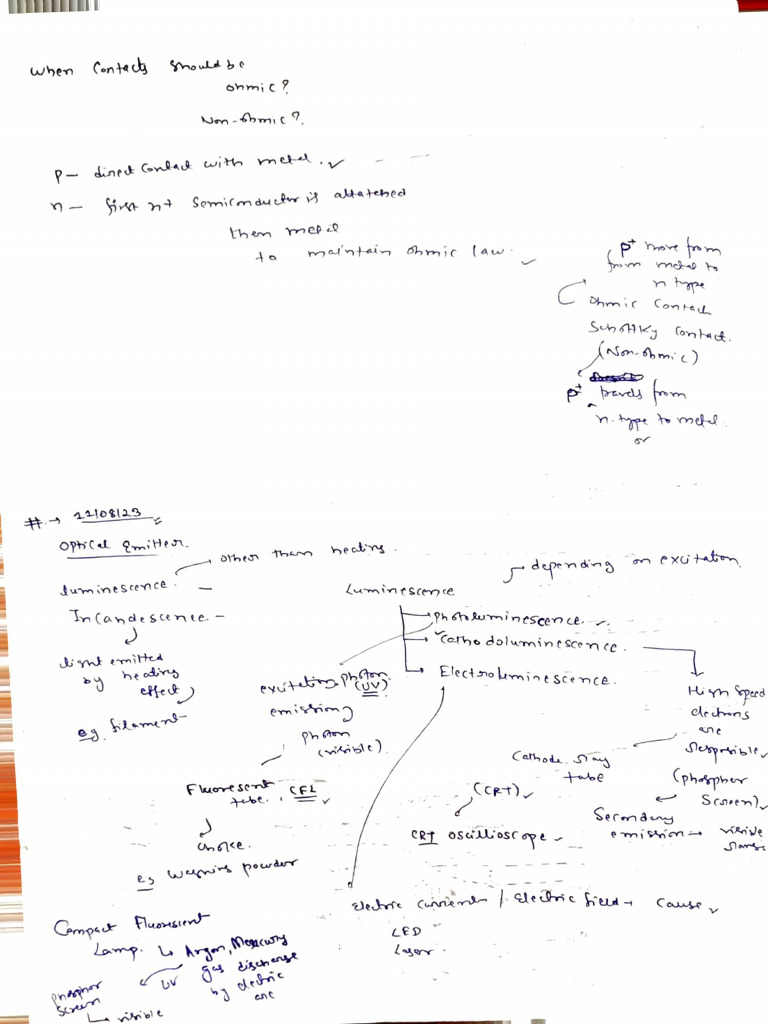 When Contacts Should be
Ohmic?
Non-Ohmic?
P - direct Contact with metal.
n - first n+ Semiconductor is attatched
then metal
to maintain ohmic law.
P+ move from
from metal to
n type
Ohmic Contact
Schottky Contact.
(Non-ohmic)
P+ travels from
n-type to metal.
or
# → 11/08/23
Optical Emitter.
other than heating.
luminescence. -
Incandescence. -
light emitted
by heating
effect
eg. filament
depending on excitation.
Luminescence
Photoluminescence.
Cathodoluminescence.
Electroluminescence.
exciteting photon
(UV)
emission
photon
(visible)
Fluoresent
tube., CFL
choke.
eg Washing powder
High Speed
electrons
are
responsible
(phospher
Screen)
Secondary
emission → visible
range
Cathode ray
tube
(CRT)
CRT oscillioscope
Electric current / Electric field → Cause
LED
Laser.
Compact Fluoresent
Lamp. ↳ Argon, Mercury
gas discharge
by electric
arc
UV
phosphor
screen
↳ visible